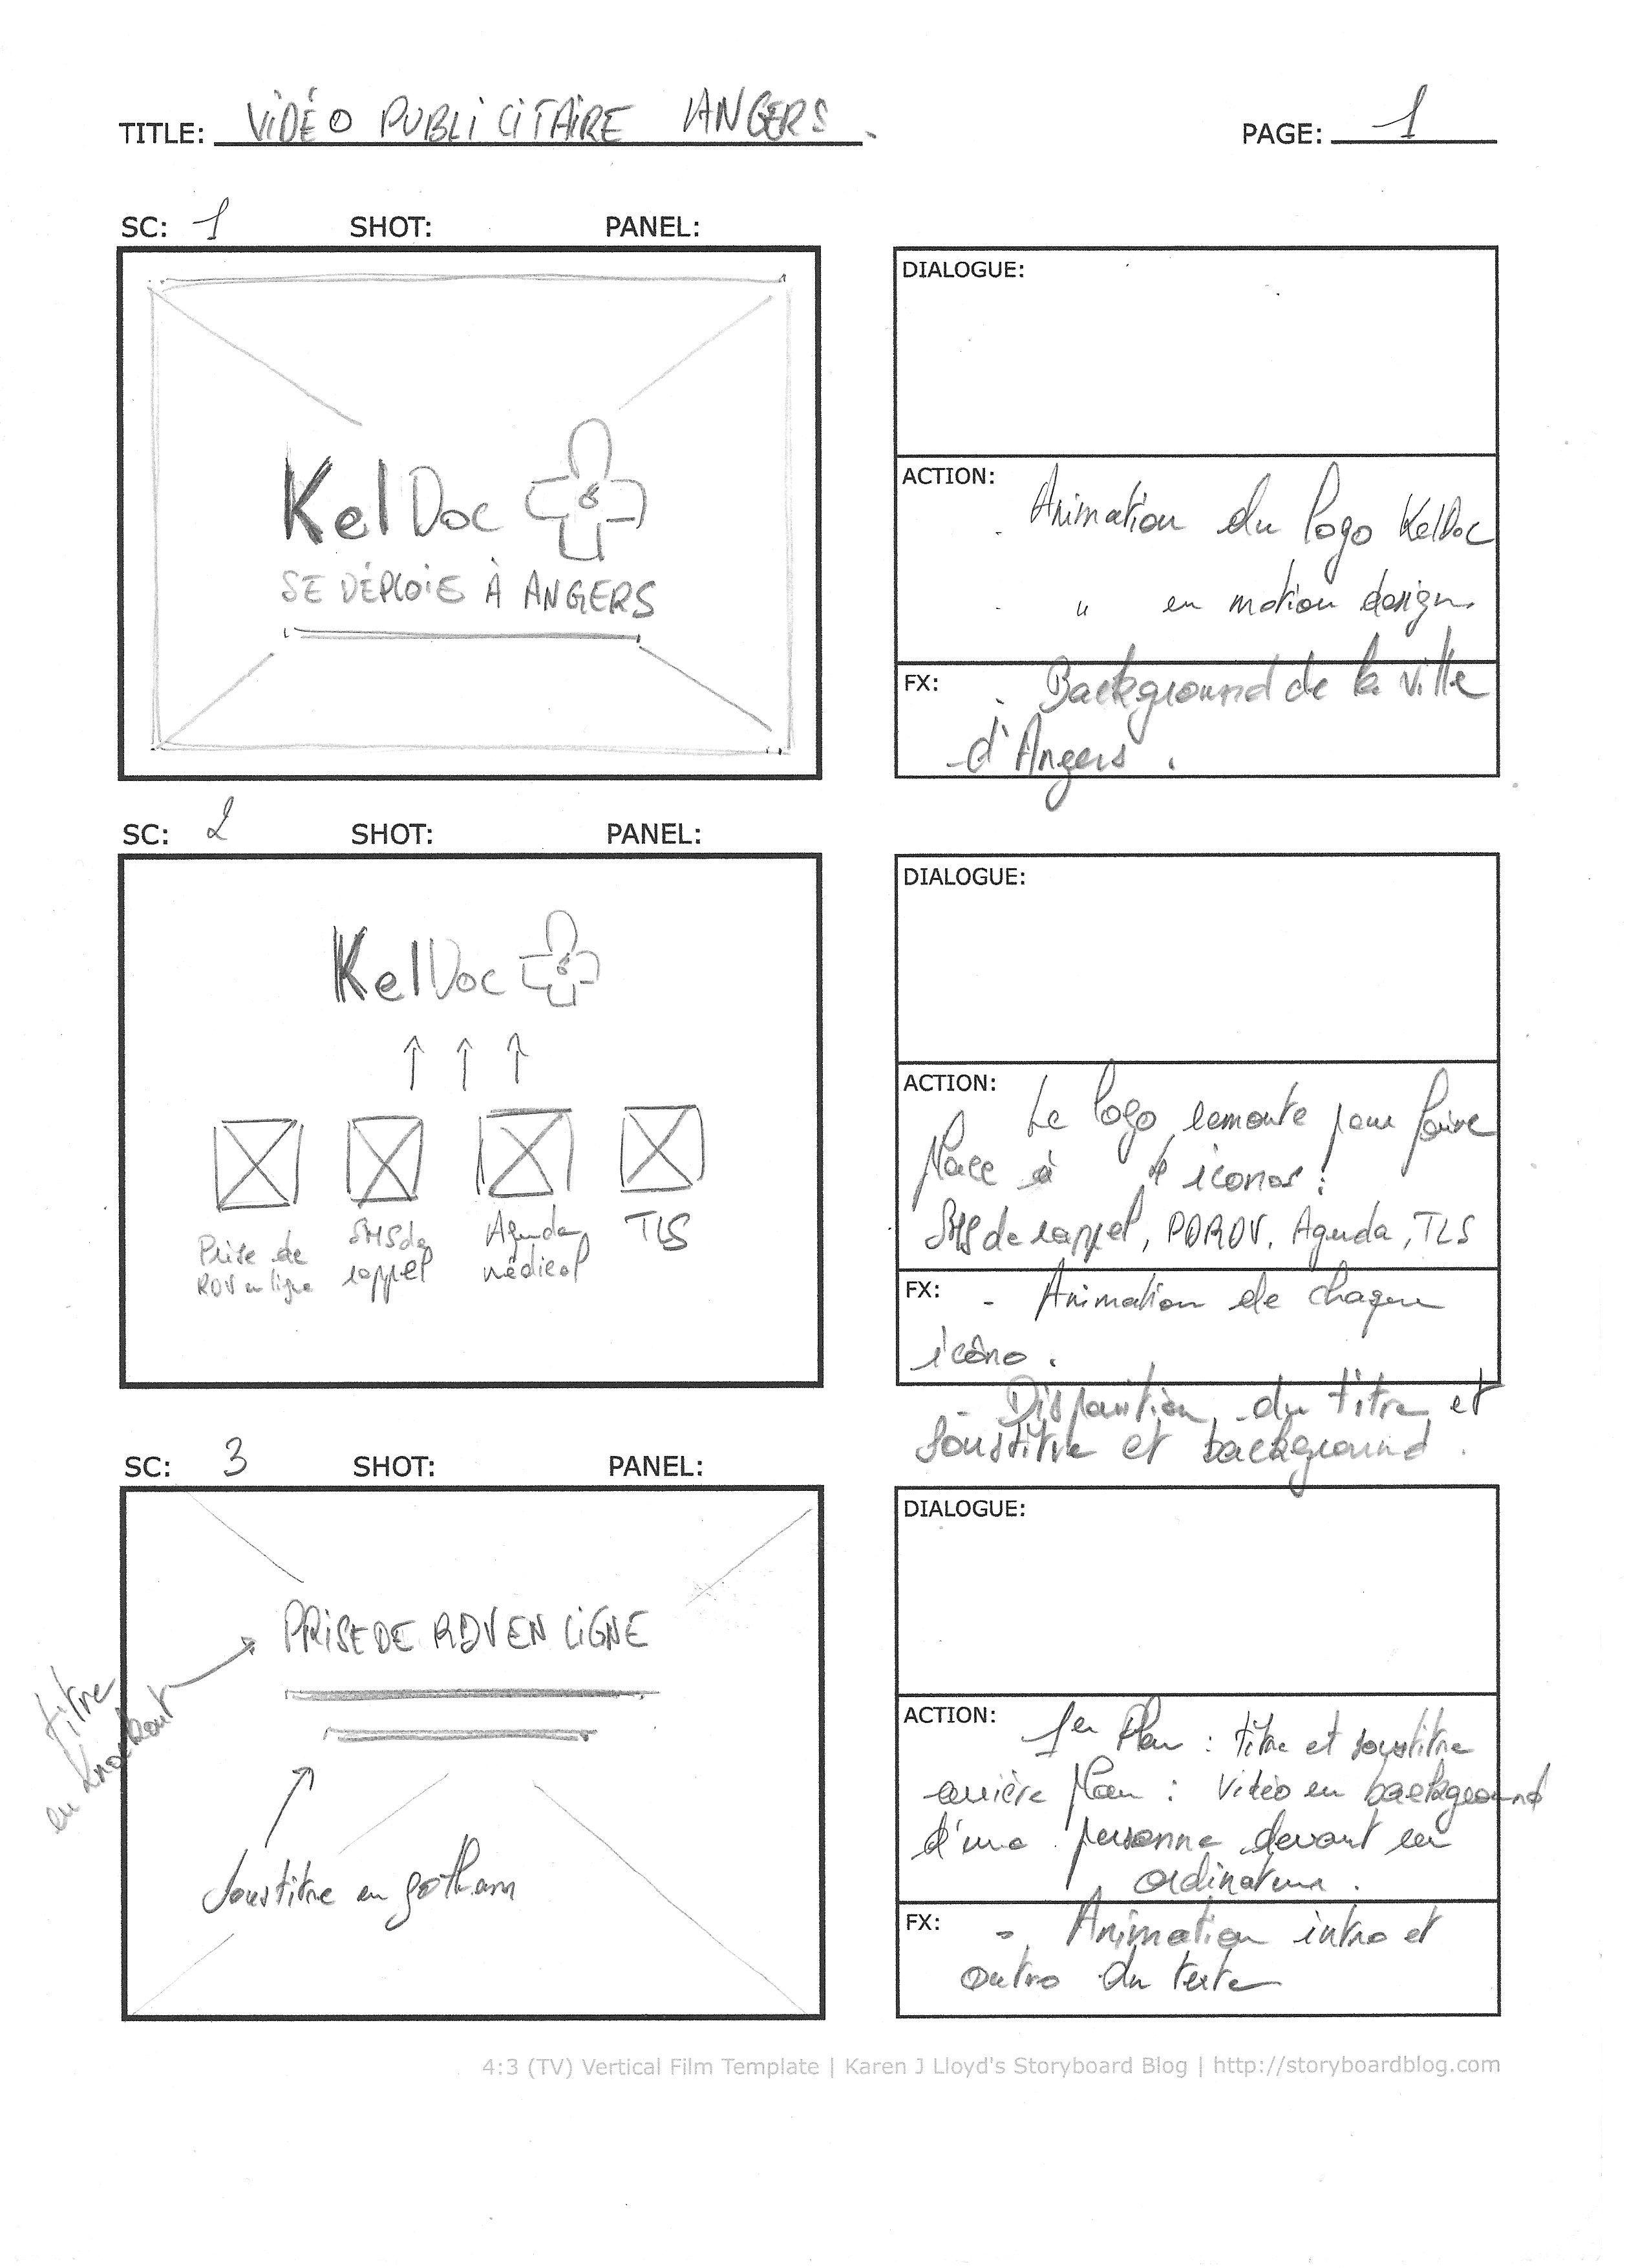 TITLE: VIDÉO PUBLICITAIRE ANGERS.
PAGE: 1
SC: 1 SHOT: PANEL:
KelDoc
SE DÉPLOIE À ANGERS
DIALOGUE:
ACTION: - Animation du logo KelDoc
- " en motion design.
FX: - Background de la ville
d'Angers.
SC: 2 SHOT: PANEL:
KelDoc
Prise de
RDV en ligne
SMS de
rappel
Agenda
médical
TLS
DIALOGUE:
ACTION: Le logo remonte pour faire
place à 4 icones :
SMS de rappel, PDRDV, Agenda, TLS
FX: - Animation de chaque
icône.
- Disparition du titre et
soustitre et background.
SC: 3 SHOT: PANEL:
PRISE DE RDV EN LIGNE
titre
en knockout
Soustitre en gotham
DIALOGUE:
ACTION: 1er Plan : titre et soustitre
arrière plan : vidéo en background
d'une personne devant un
ordinateur.
FX: - Animation intro et
outro du texte
4:3 (TV) Vertical Film Template | Karen J Lloyd's Storyboard Blog | http://storyboardblog.com